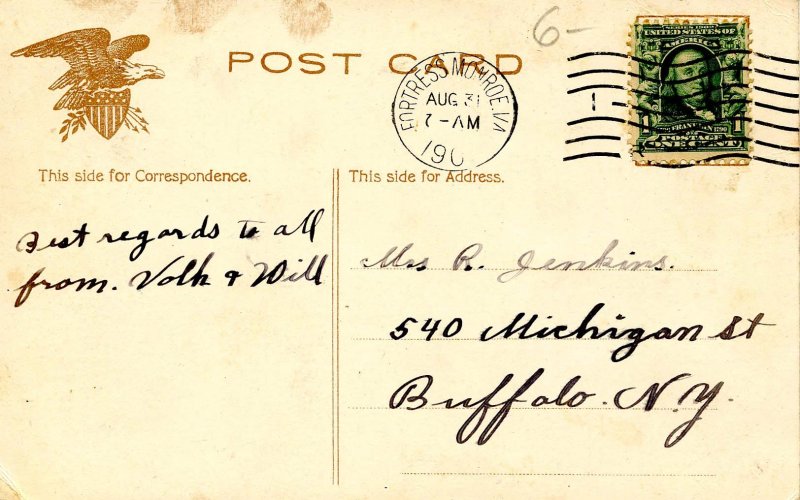 POST CARD
6-
FORTRESS MONROE, VA
AUG 31
7-AM
190
1
SERIES 1902
UNITED STATES OF
AMERICA
FRANKLIN 1790
1 POSTAGE 1
ONE CENT
This side for Correspondence.
This side for Address.
Best regards to all
from. Volk & Will
Mrs R. Jenkins.
540 Michigan St
Buffalo. N.Y.